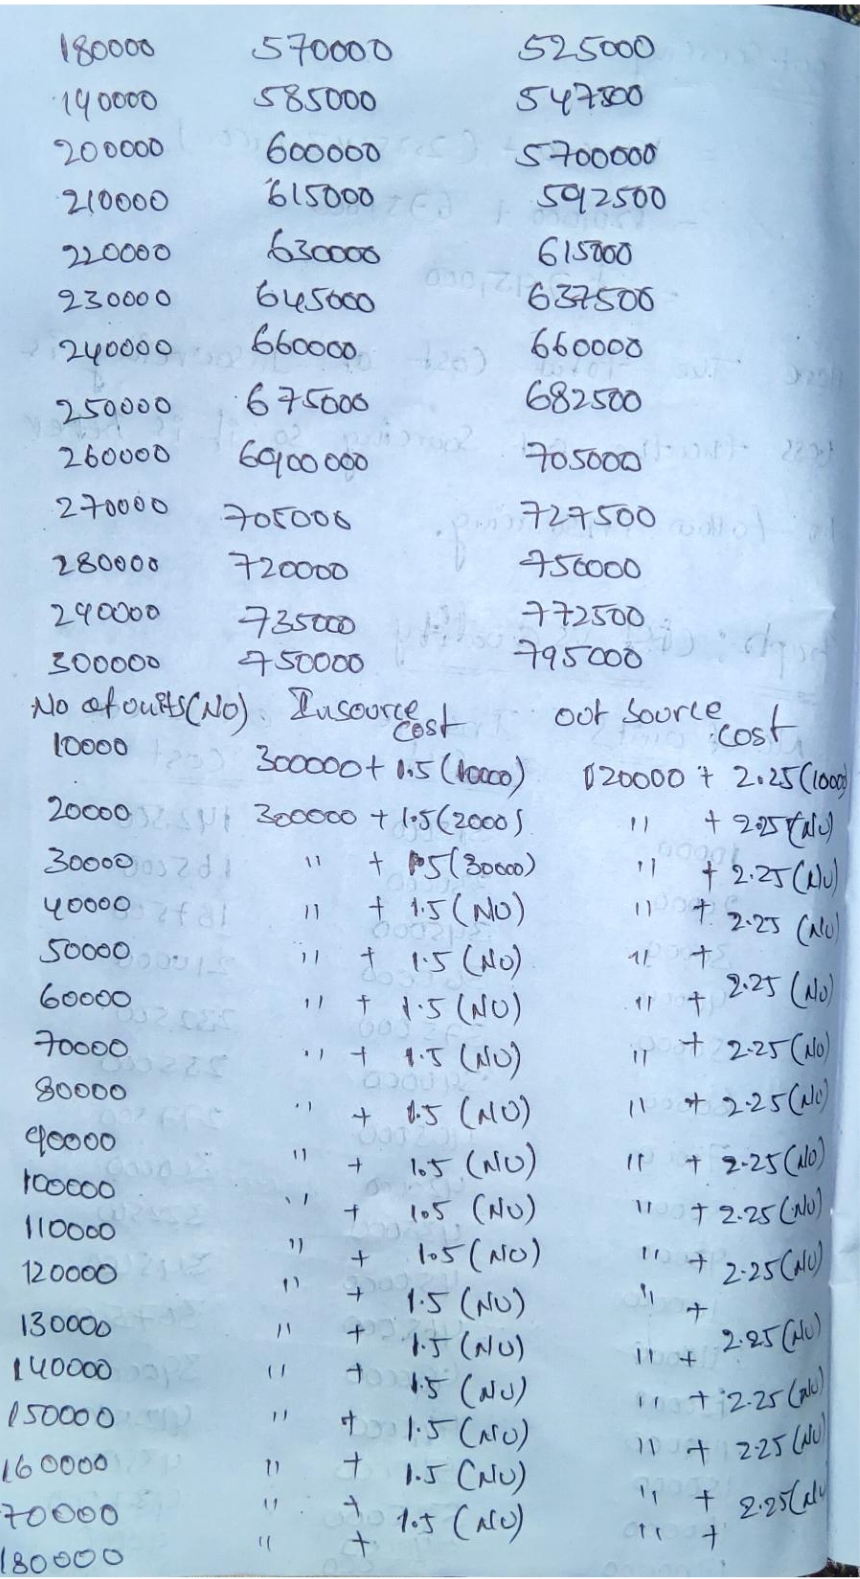 180000 570000 525000
190000 585000 547500
200000 600000 5700000
210000 615000 592500
220000 630000 615000
230000 645000 637500
240000 660000 660000
250000 675000 682500
260000 6900000 705000
270000 705000 727500
280000 720000 750000
290000 735000 772500
300000 750000 795000
No of units(NO) Insource cost out source cost
10000 300000 + 1.5 (10000) 120000 + 2.25(1000)
20000 300000 + 1.5(2000) " + 2.25(NO)
30000 " + 1.5(30000) " + 2.25(NO)
40000 " + 1.5(NO) " + 2.25 (NO)
50000 " + 1.5 (NO) " + 2.25 (NO)
60000 " + 1.5 (NO) " + 2.25 (NO)
70000 " + 1.5 (NO) " + 2.25(NO)
80000 " + 1.5 (NO) " + 2.25(NO)
90000 " + 1.5 (NO) " + 2.25(NO)
100000 " + 1.5 (NO) " + 2.25(NO)
110000 " + 1.5(NO) " + 2.25(NO)
120000 " + 1.5 (NO) " + 2.25(NO)
130000 " + 1.5 (NO) " + 2.25(NO)
140000 " + 1.5 (NO) " + 2.25(NO)
150000 " + 1.5 (NO) " + 2.25(NO)
160000 " + 1.5 (NO) " + 2.25(NO)
70000 " + 1.5 (NO) " +
180000 " +